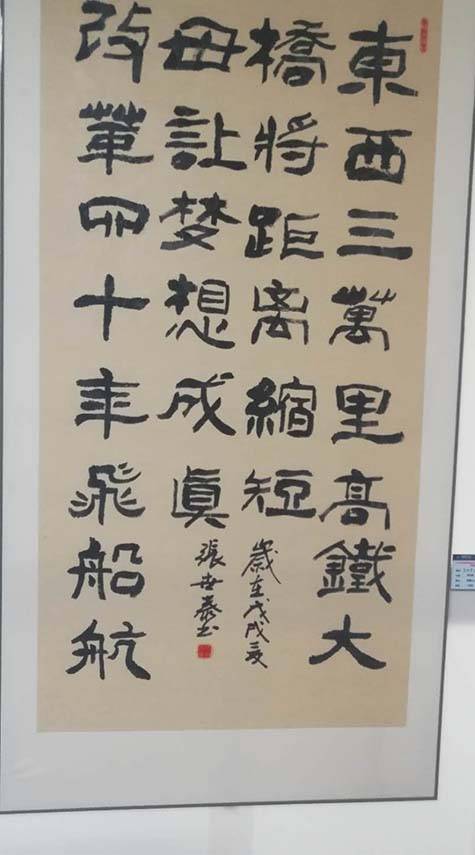 東西三萬里高鐵大
橋將距离縮短
歲在戊戌夏
改革四十年飛船航
母让梦想成眞
張世泰书